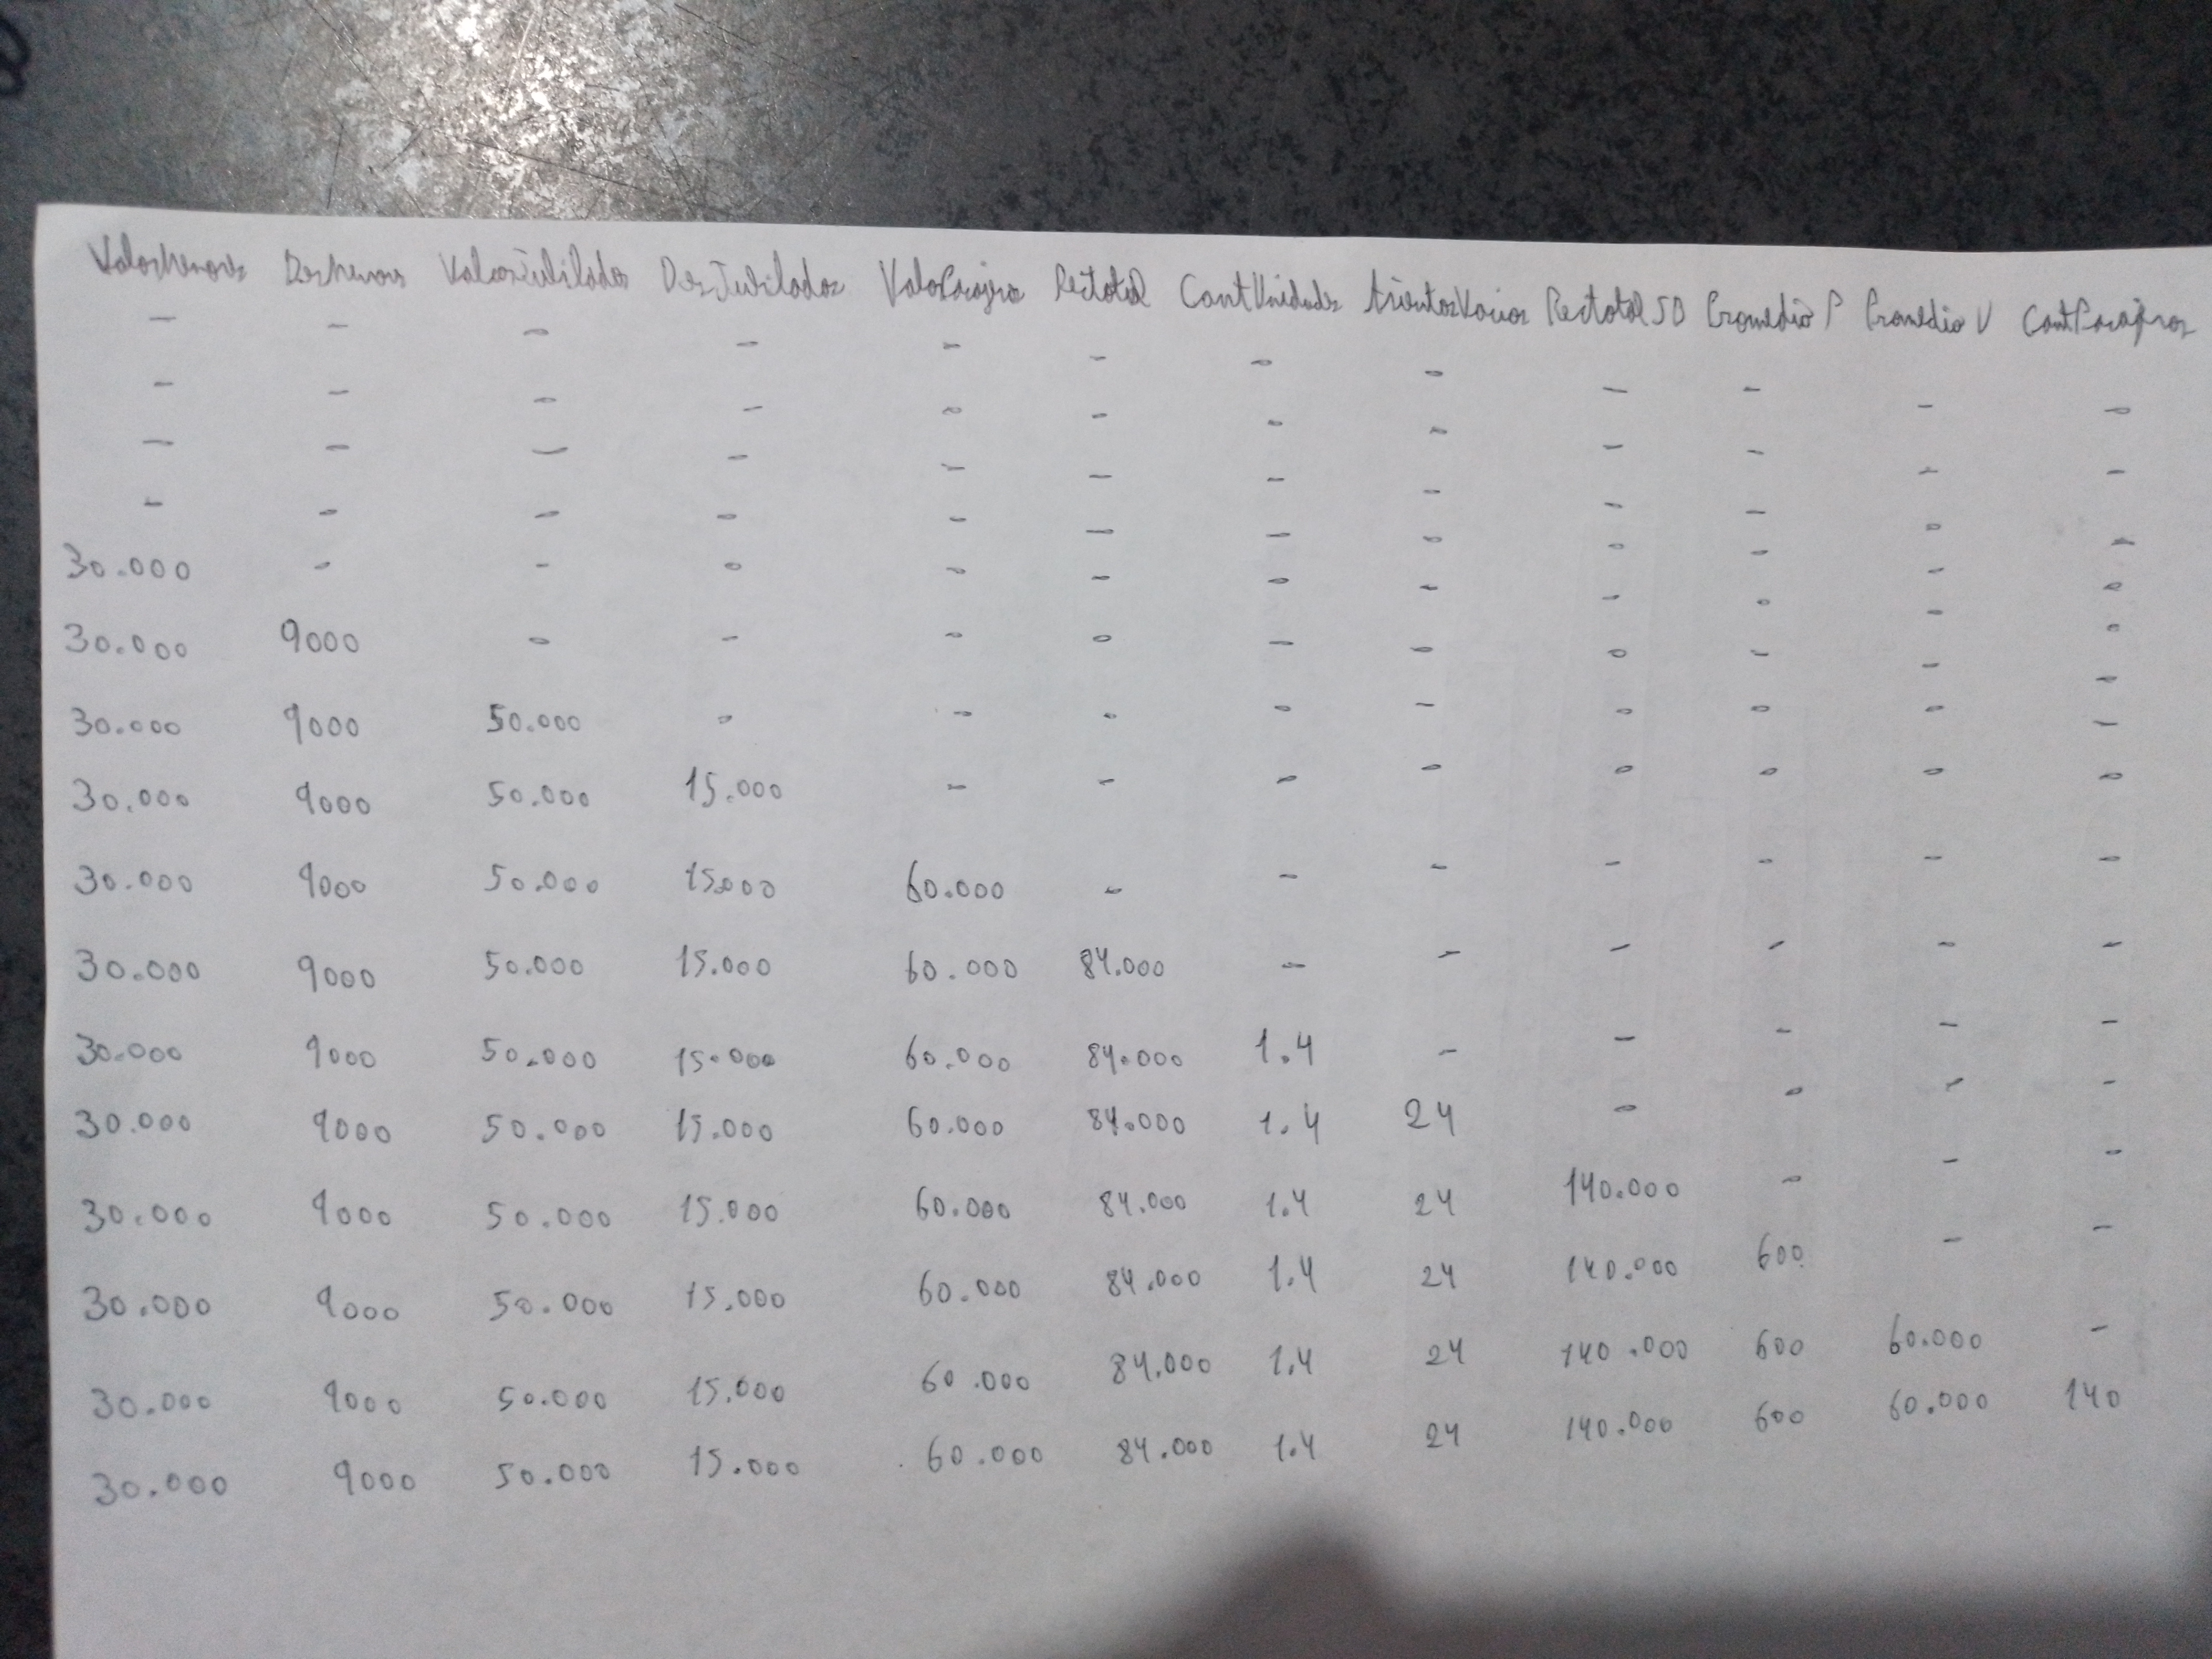 ValorMenores DesMenores ValorJubilados DesJubilados ValorPasajero RecTotal CantUnidades AsientosVacios RecTotal SD Promedio P Promedio V CantPasajeros
- - - - - - - - - - - -
- - - - - - - - - - - -
- - - - - - - - - - - -
- - - - - - - - - - - -
30.000 - - - - - - - - - - -
30.000 9000 - - - - - - - - - -
30.000 9000 50.000 - - - - - - - - -
30.000 9000 50.000 15.000 - - - - - - - -
30.000 9000 50.000 15.000 60.000 - - - - - - -
30.000 9000 50.000 15.000 60.000 84.000 - - - - - -
30.000 9000 50.000 15.000 60.000 84.000 1.4 - - - - -
30.000 9000 50.000 15.000 60.000 84.000 1.4 24 - - - -
30.000 9000 50.000 15.000 60.000 84.000 1.4 24 140.000 - - -
30.000 9000 50.000 15.000 60.000 84.000 1.4 24 140.000 600 - -
30.000 9000 50.000 15.000 60.000 84.000 1.4 24 140.000 600 60.000 -
30.000 9000 50.000 15.000 60.000 84.000 1.4 24 140.000 600 60.000 140